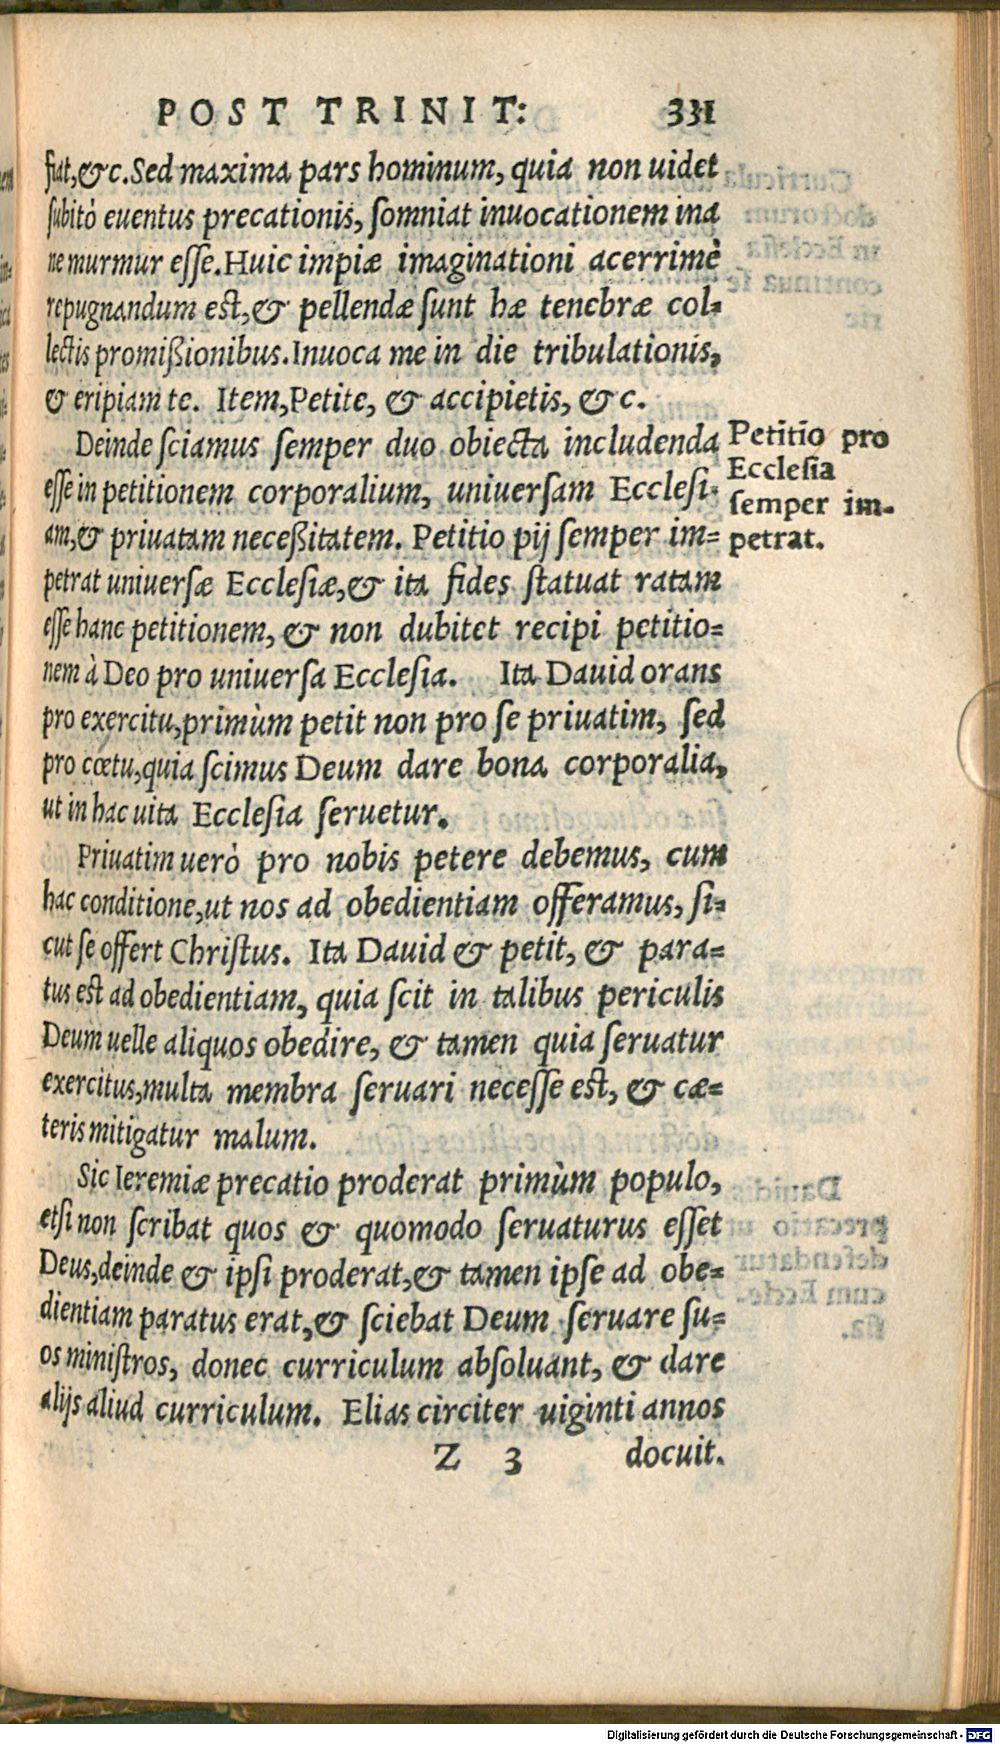 POST TRINIT: 331
fiat, &c. Sed maxima pars hominum, quia non uidet
subitò euentus precationis, somniat inuocationem ina
ne murmur esse. Huic impiæ imaginationi acerrimè
repugnandum est, & pellendæ sunt hæ tenebræ col-
lectis promißionibus. Inuoca me in die tribulationis,
& eripiam te. Item, Petite, & accipietis, &c.
Deinde sciamus semper duo obiecta includenda
esse in petitionem corporalium, uniuersam Ecclesi-
am, & priuatam neceßitatem. Petitio pij semper im-
petrat uniuersæ Ecclesiæ, & ita fides statuat ratam
esse hanc petitionem, & non dubitet recipi petitio-
nem à Deo pro uniuersa Ecclesia. Ita Dauid orans
pro exercitu, primùm petit non pro se priuatim, sed
pro cœtu, quia scimus Deum dare bona corporalia,
ut in hac uita Ecclesia seruetur.
Priuatim uerò pro nobis petere debemus, cum
hac conditione, ut nos ad obedientiam offeramus, si-
cut se offert Christus. Ita Dauid & petit, & para-
tus est ad obedientiam, quia scit in talibus periculis
Deum uelle aliquos obedire, & tamen quia seruatur
exercitus, multa membra seruari necesse est, & cæ-
teris mitigatur malum.
Sic Ieremiæ precatio proderat primùm populo,
etsi non scribat quos & quomodo seruaturus esset
Deus, deinde & ipsi proderat, & tamen ipse ad obe-
dientiam paratus erat, & sciebat Deum seruare su-
os ministros, donec curriculum absoluant, & dare
alijs aliud curriculum. Elias circiter uiginti annos
Z 3 docuit.
Petitio pro
Ecclesia
semper im-
petrat.
Digitalisierung gefördert durch die Deutsche Forschungsgemeinschaft - DFG